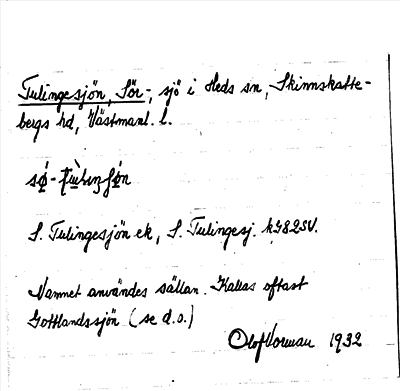 Tulingesjön, Sör-, sjö i Heds sn, Skinnskatte-
bergs hd, Västmanl. l.
S. Tulingesjön ek, S. Tulingesj. kG82SV.
Namnet användes sällan. Kallas oftast
Gottlandssjön (se d.o.)
Olof Norman 1932